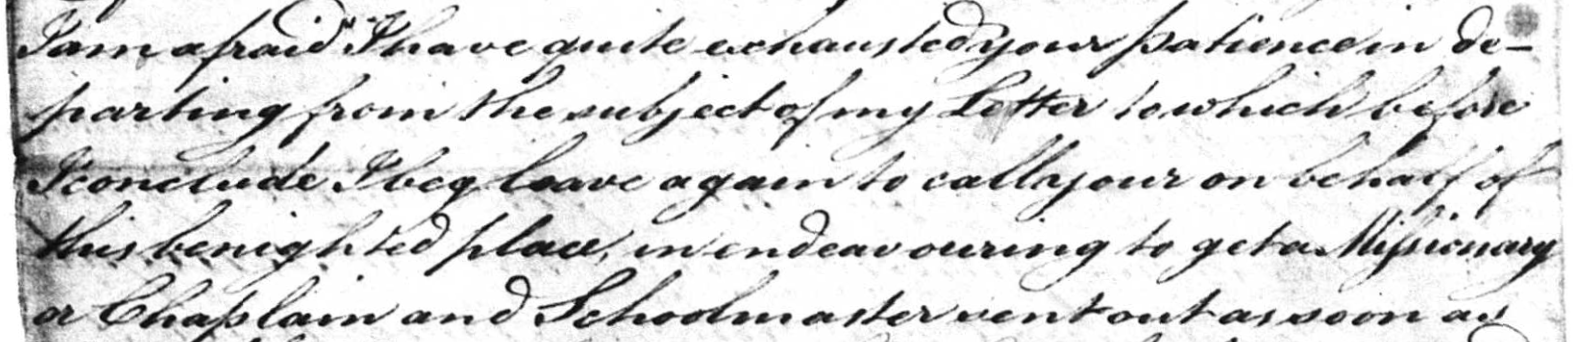 I am afraid I have quite exhausted your patience in de-
parting from the subject of my Letter to which before
I conclude I beg leave again to call your on behalf of
this benighted place, in endeavouring to get a Missionary
or Chaplain and Schoolmaster sent out as soon as